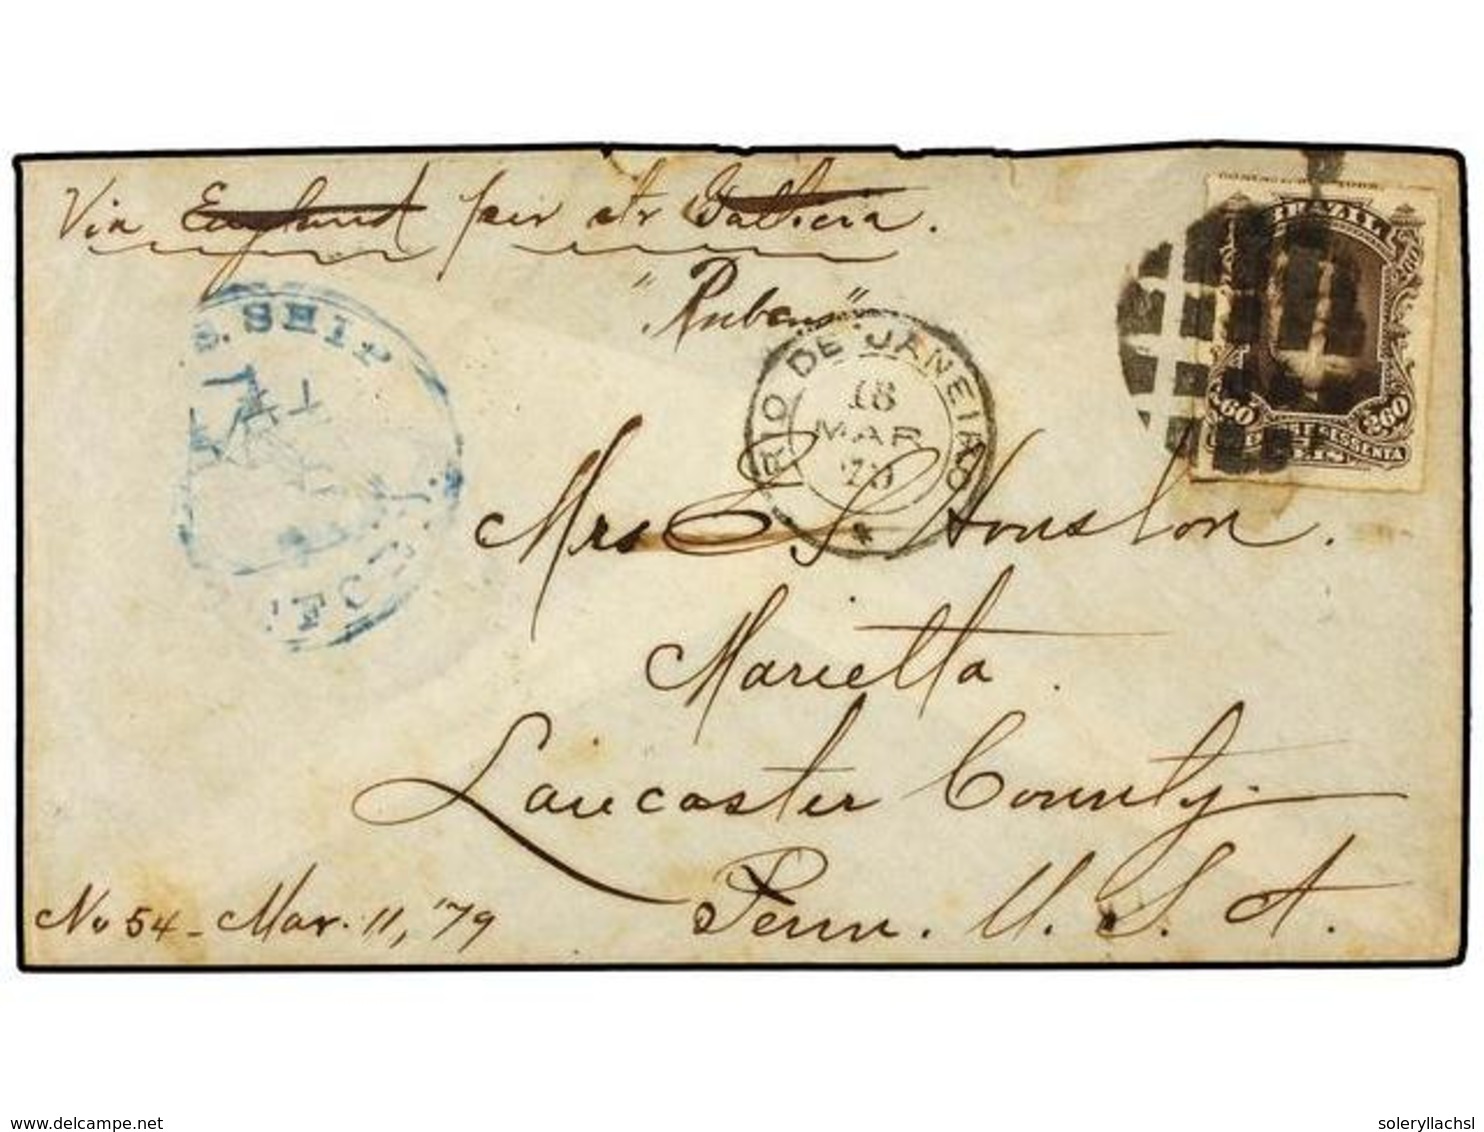 Via England per str Gallicia.
"Rubens"
S. SHIP
RIO DE JANEIRO
18
MAR
79
BRAZIL
260
260
REIS
Mrs E S Houston.
Marietta.
Lancaster County.
Penn. U. S. A.
No 54 - Mar. 11, '79
delcampe.net
soleryllachsl